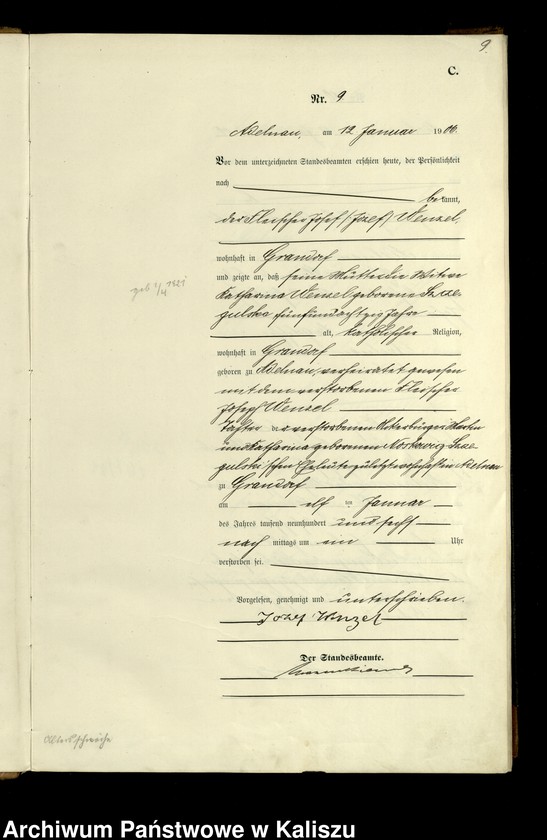 9.
C.
Nr. 9
Adelnau, am 12 Januar 1906.
Vor dem unterzeichneten Standesbeamten erschien heute, der Persönlichkeit
nach bekannt,
der Fleischer Josef (Jozef) Wenzel,
wohnhaft in Grandorf
und zeigte an, daß seine Mutter die Witwe
Katharina Wenzel geborene Szcze-
gulska fünfundachtzig Jahre
alt, katholischer Religion,
wohnhaft in Grandorf
geboren zu Adelnau, verheiratet gewesen
mit dem verstorbenen Fleischer
Joseph Wenzel
Tochter der verstorbenen Ackerbürger Martin
und Katharina geborenen
gulski'schen Eheleute zuletzt wohnhaft in Adelnau
zu Grandorf
am elf ten Januar
des Jahres tausend neunhundert und sechs
nach mittags um ein Uhr
verstorben sei.
Vorgelesen, genehmigt und unterschrieben.
Jozef Wenzel
Der Standesbeamte.
geb. 1821
Altersschwäche
Archiwum Państwowe w Kaliszu